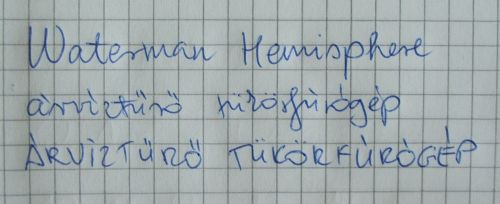 Waterman Hemisphere
árvíztűrő tükörfúrógép
ÁRVÍZTŰRŐ TÜKÖRFÚRÓGÉP